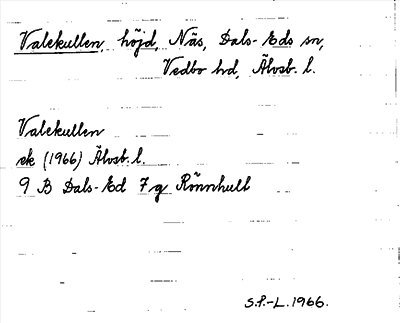 Valekullen, höjd, Näs, Dals-Eds sn,
Vedbo hd, Älvsb. l.
Valekullen
ek (1966) Älvsb. l.
9 B Dals-Ed 7 g Rönnhult
S.F.-L. 1966.